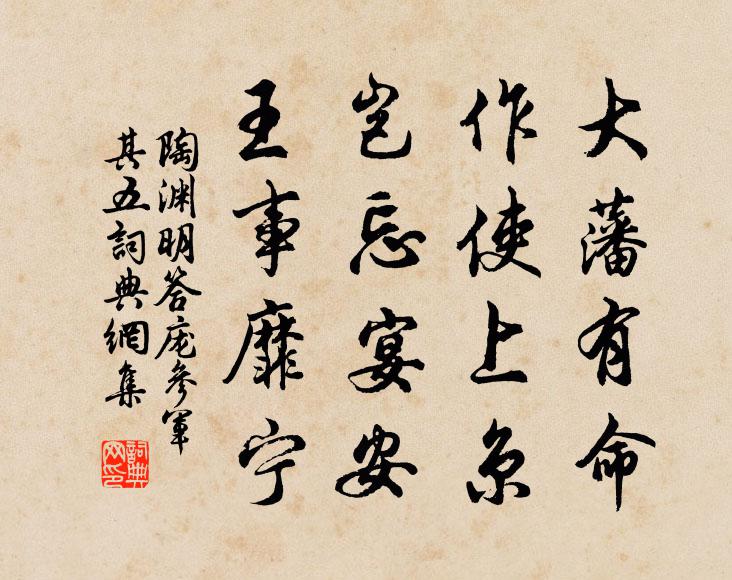 大藩有命
作使上京
豈忘宴安
王事靡宁
陶渊明答庞參軍
其五詞典網集
詞典
网印